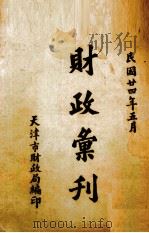 民國廿四年五月
財政彙刊
天津市財政局編印
www.mtoou.info